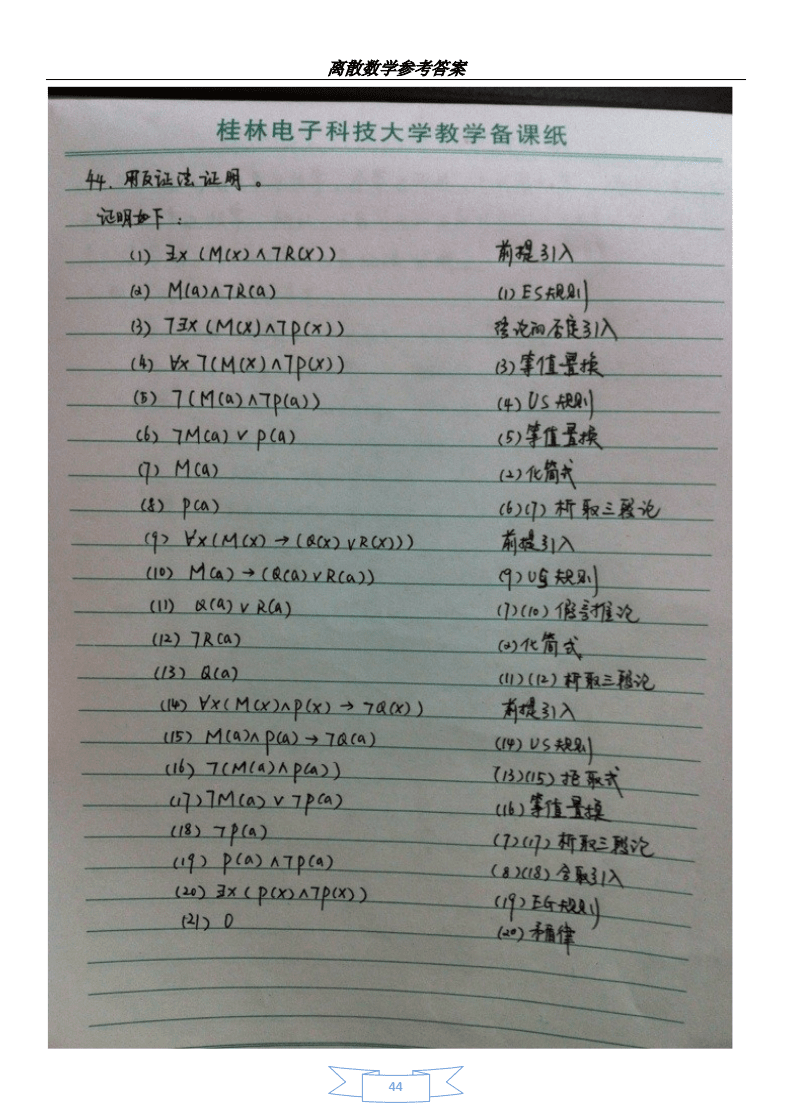 离散数学参考答案
桂林电子科技大学教学备课纸
44. 用反证法证明。
证明如下：
(1) ∃x (M(x)∧¬R(x)) 前提引入
(2) M(a)∧¬R(a) (1) ES规则
(3) ¬∃x (M(x)∧¬P(x)) 结论的否定引入
(4) ∀x ¬(M(x)∧¬P(x)) (3) 等值置换
(5) ¬(M(a)∧¬P(a)) (4) US规则
(6) ¬M(a) ∨ P(a) (5) 等值置换
(7) M(a) (2) 化简式
(8) P(a) (6)(7) 析取三段论
(9) ∀x(M(x) → (Q(x)∨R(x))) 前提引入
(10) M(a) → (Q(a)∨R(a)) (9) US规则
(11) Q(a) ∨ R(a) (7)(10) 假言推论
(12) ¬R(a) (2) 化简式
(13) Q(a) (11)(12) 析取三段论
(14) ∀x(M(x)∧P(x) → ¬Q(x)) 前提引入
(15) M(a)∧P(a) → ¬Q(a) (14) US规则
(16) ¬(M(a)∧P(a)) (13)(15) 拒取式
(17) ¬M(a) ∨ ¬P(a) (16) 等值置换
(18) ¬P(a) (7)(17) 析取三段论
(19) P(a) ∧¬P(a) (8)(18) 合取引入
(20) ∃x (P(x)∧¬P(x)) (19) EG规则
(21) 0 (20) 矛盾律
44